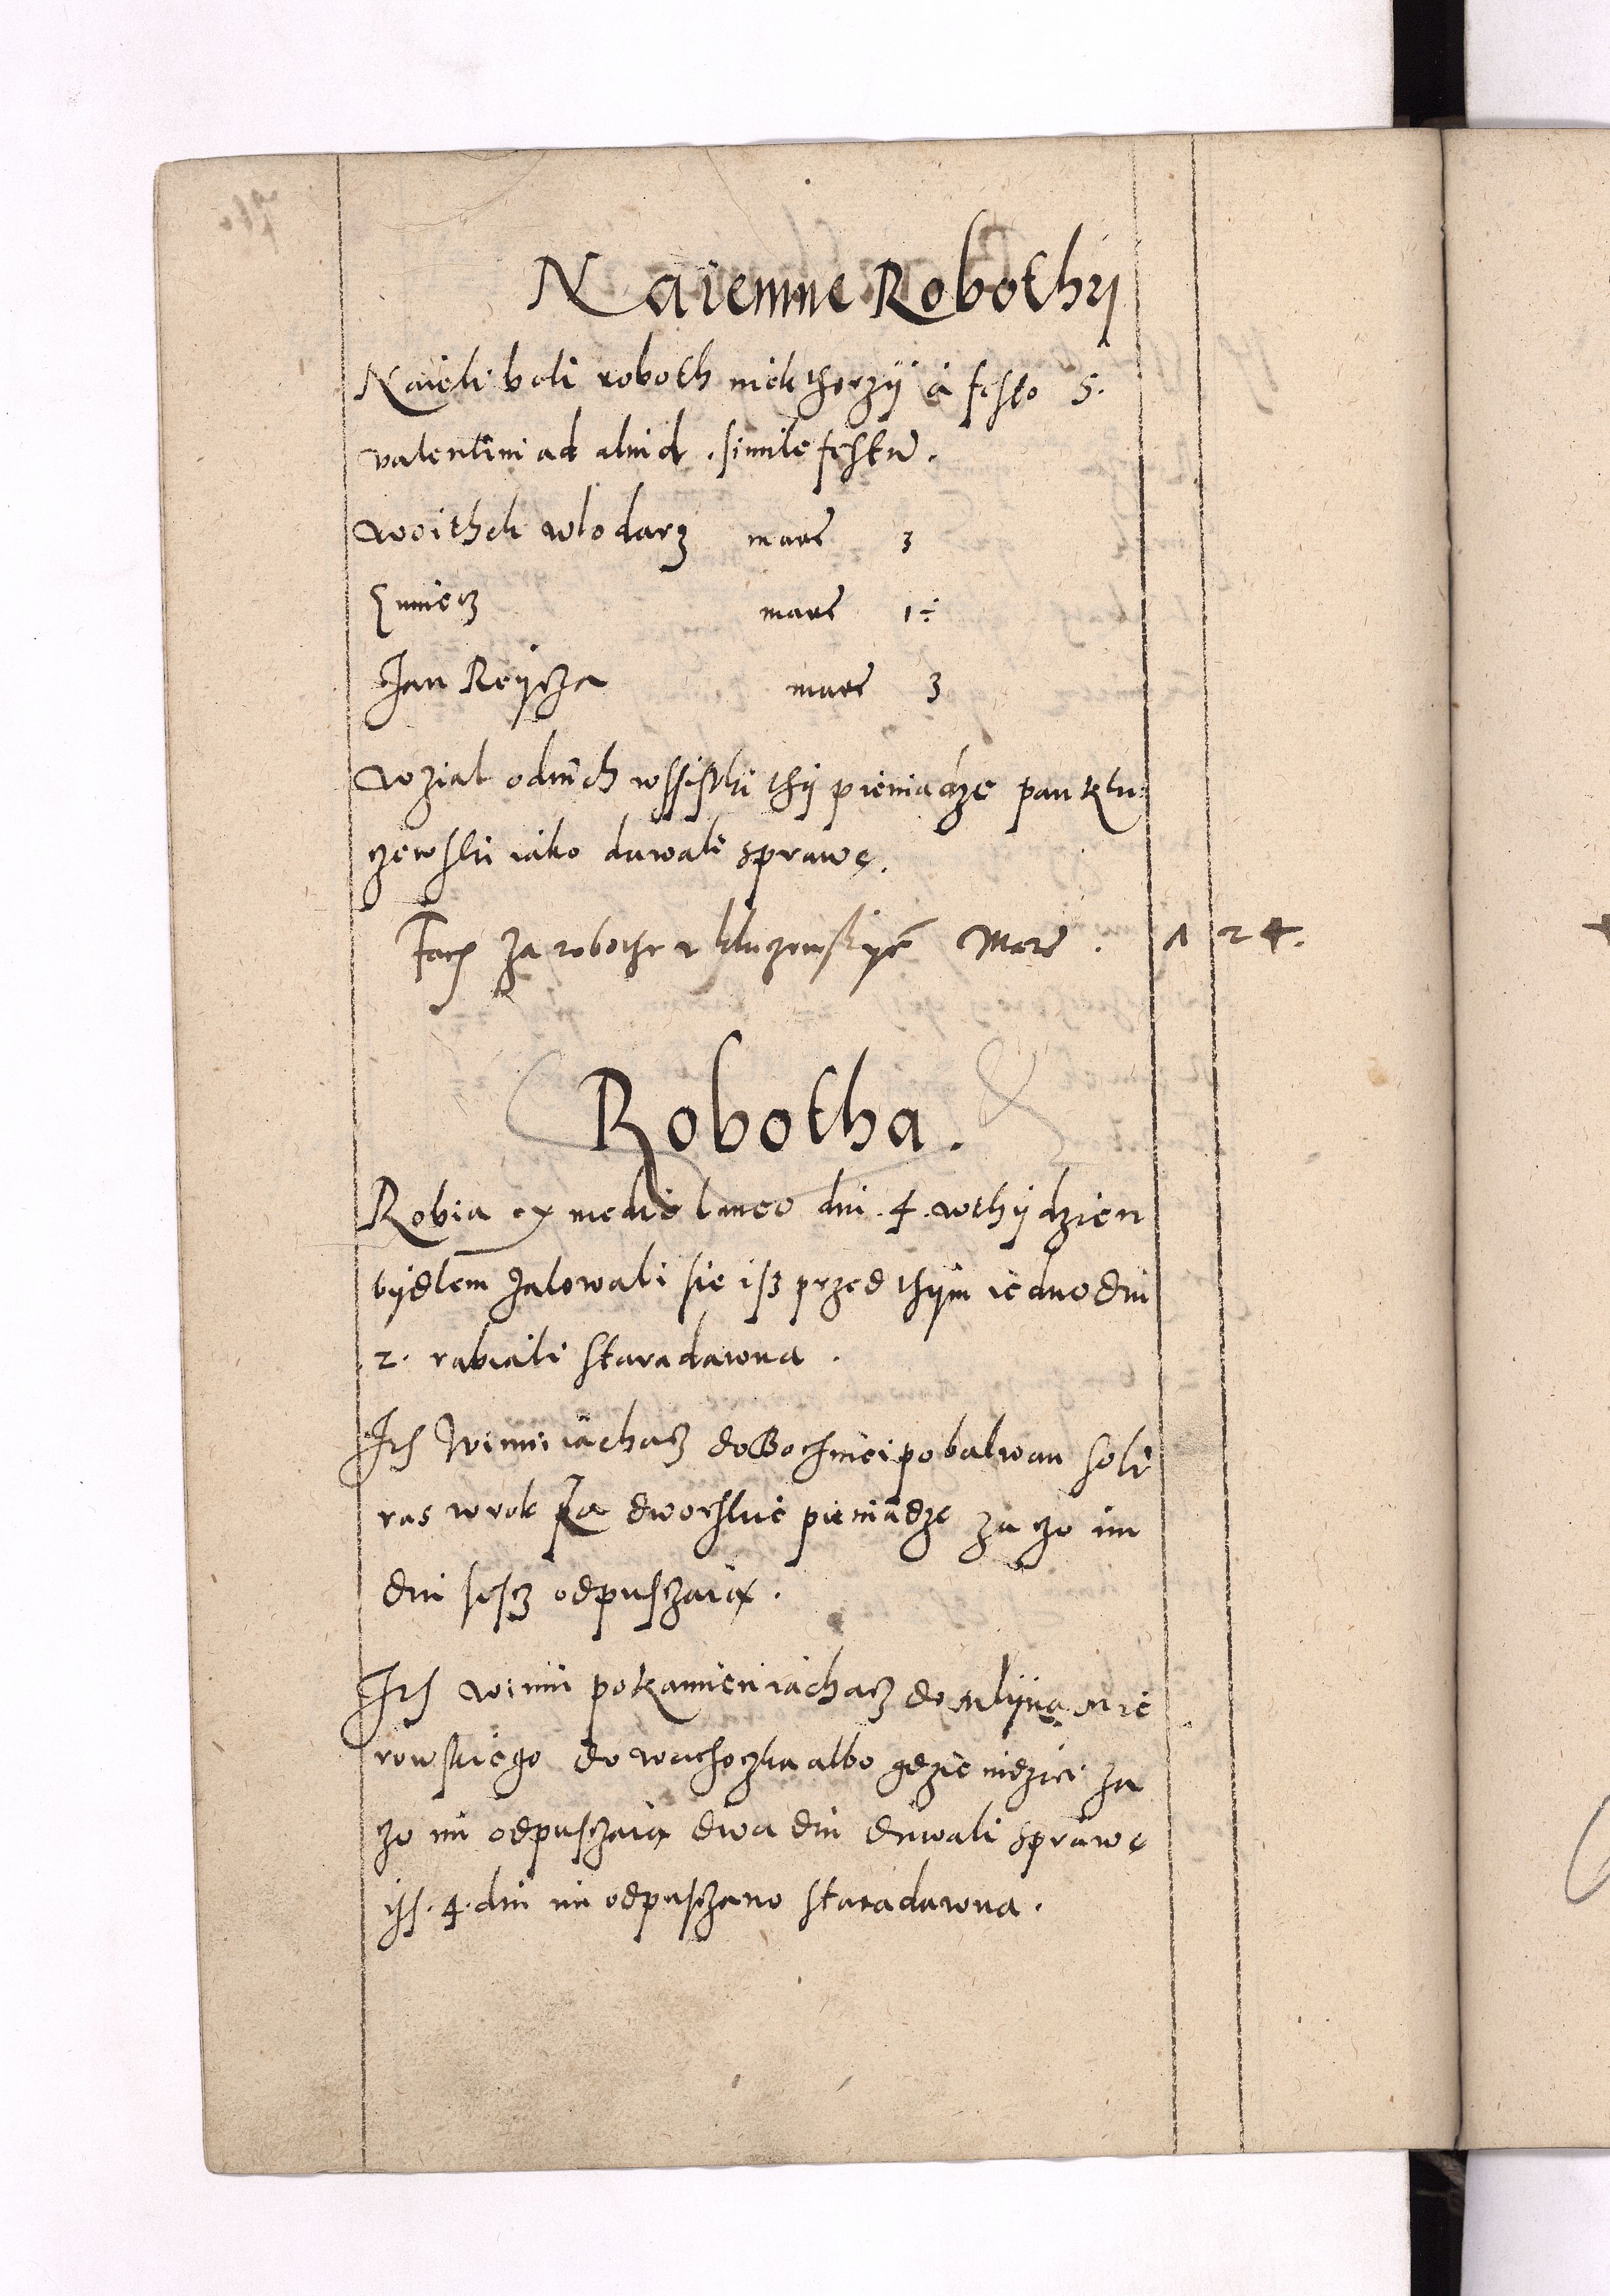 Naiemne Robothÿ
Naieli beli roboth niektherzÿ à festo S.
valentini ad aliud simile festũ.
Woithek wlodarz marc 3
marc 1÷
Jan Reÿcza marc 3
Wzial odnich wssistki thÿ pieniadze pan Klu=
czewski iako dawali sprawę.
Facit za robothe v kluczewskyē Marc. 1 24.
Robotha.
Robia ex medio laneo dni .4. wthÿdzien
bÿdlem zalowali sie isz przed thÿm iedno dni
2. rabiali staradawna.
Jtē Winni iachacz do Bochniei po balwan soli
ras wrok Za dworskie pieniądze za czo im
dni sescz odpusczaią.
Jtē winni po kamien iachacz do mlÿna Mie
rowskiego do wachoczka albo gdzie indziei za
czo im odpusczaią dwa dni dawali sprawę
iss .4. dni im odpusczano staradawna.